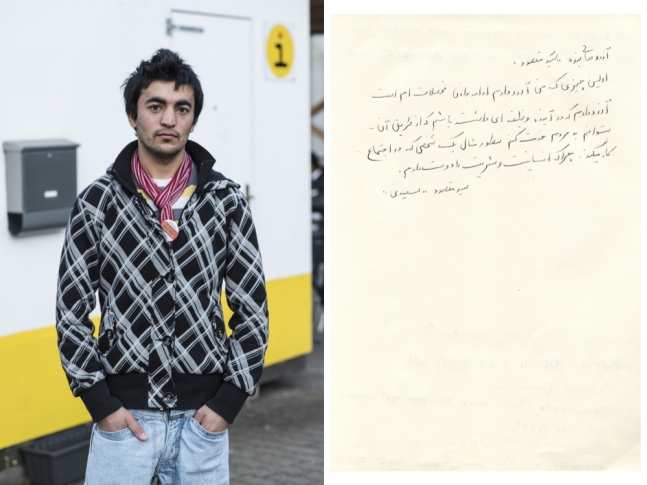 i
اولین چیزی که من آرزو دارم ادامه دادن تحصیلات ام است
آرزو دارم که در آینده وظیفه ای داشته باشم که از طریق آن
بتوانم به مردم خدمت کنم بطور مثال یک شخصی که در اجتماع
کار میکند. چرا که انسانیت و بشریت را دوست دارم.